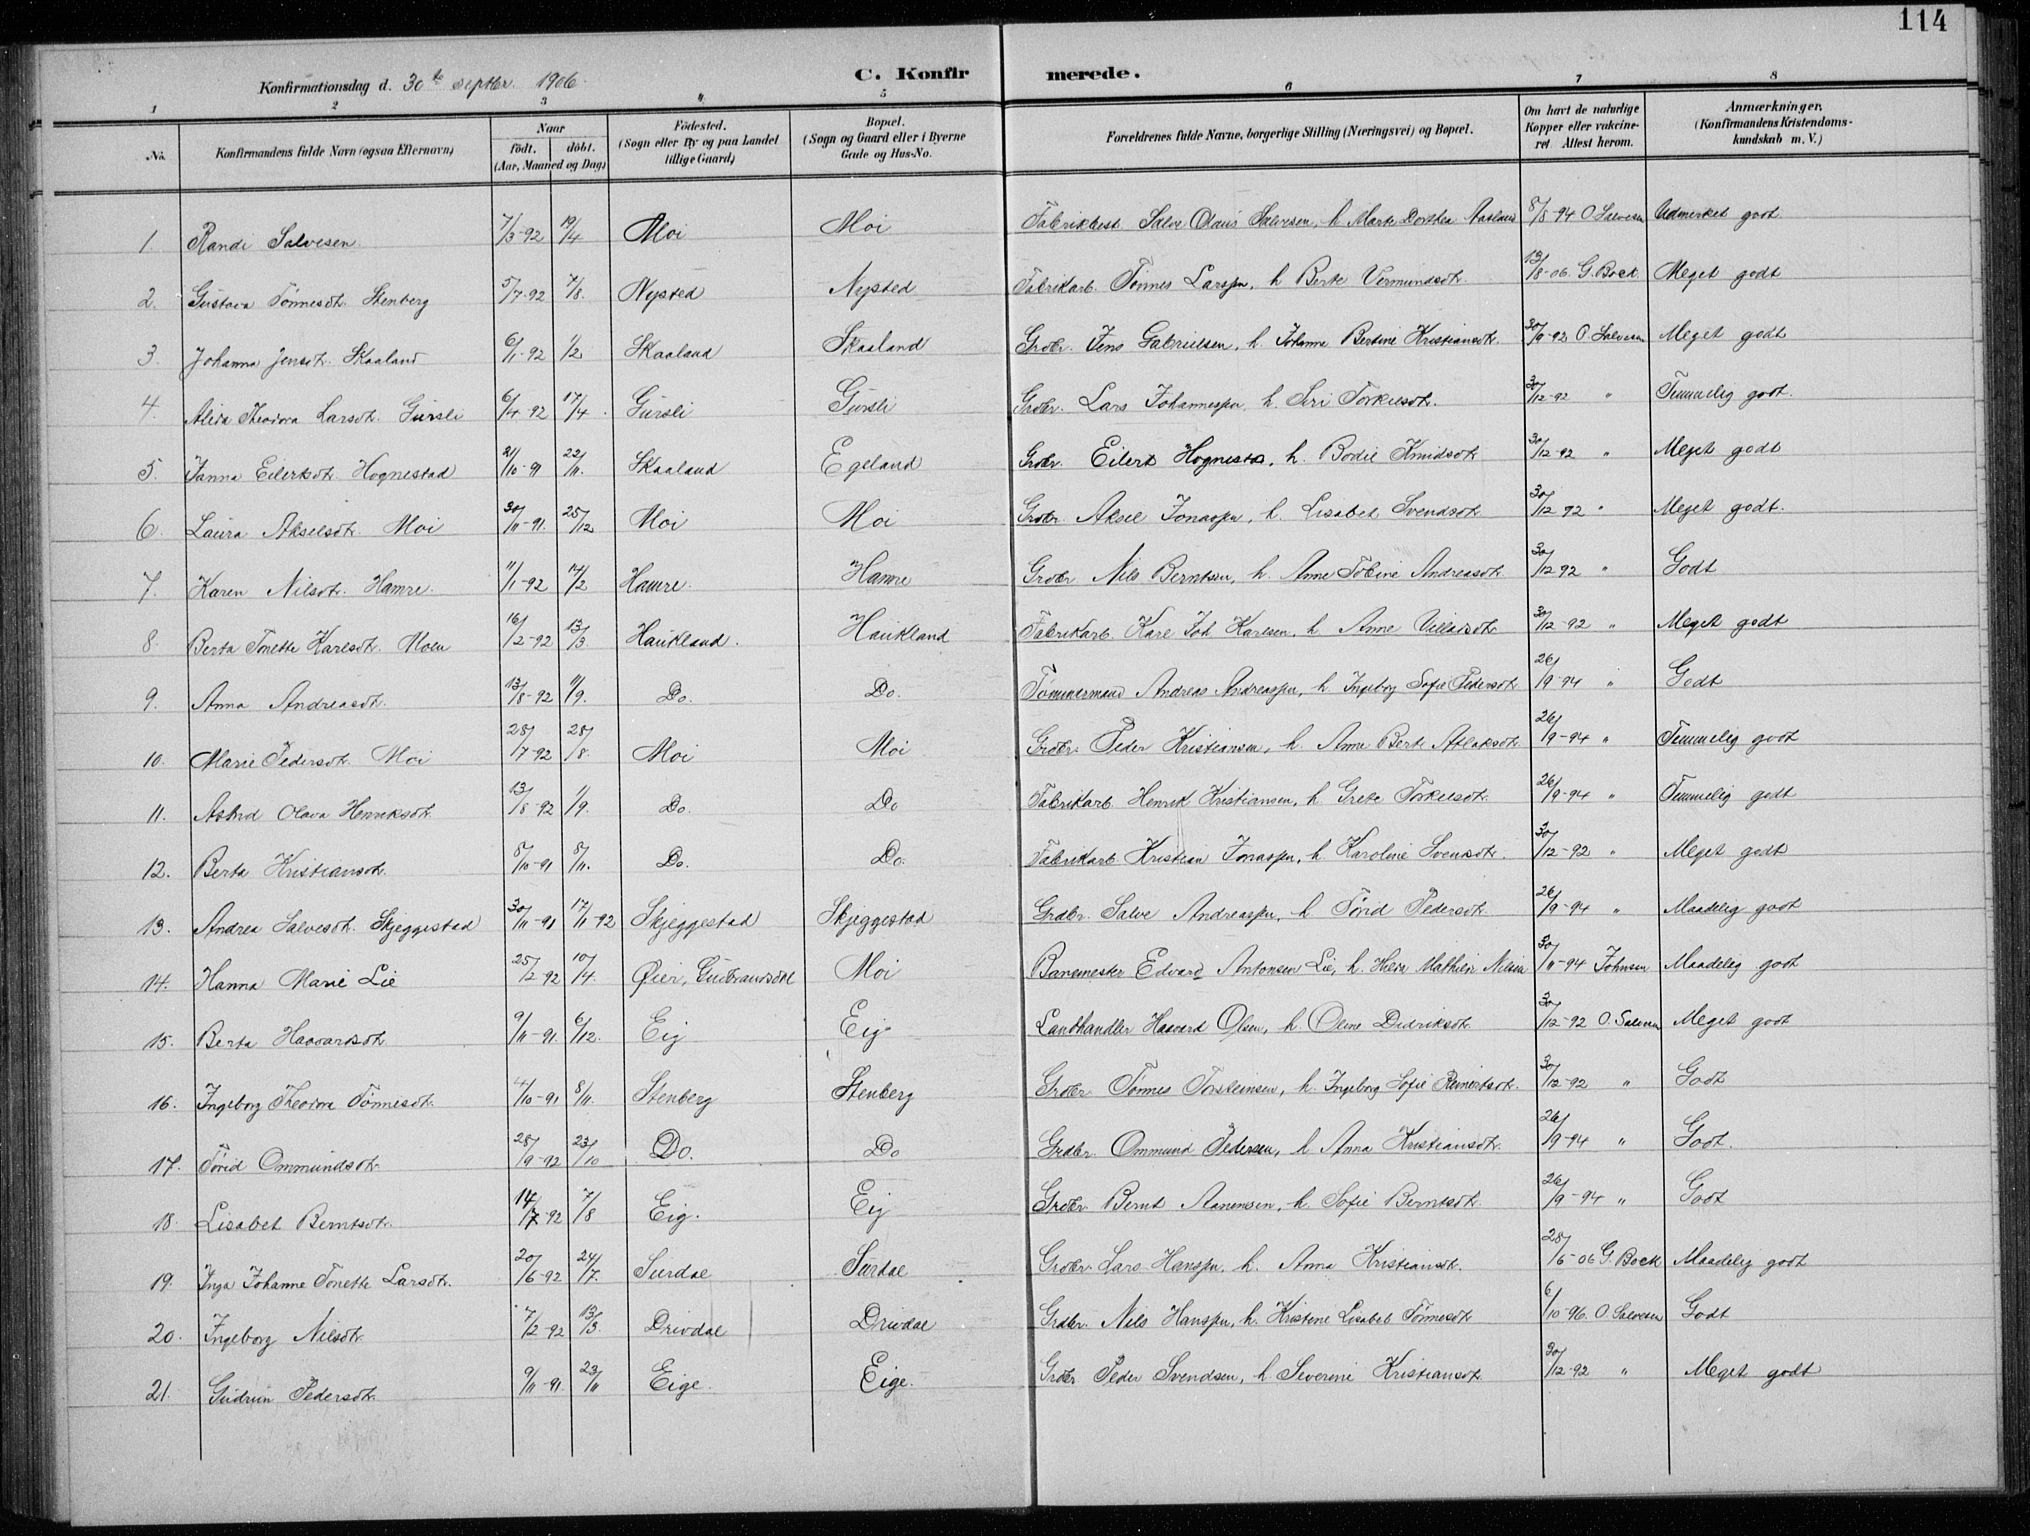 114
Konfirmationsdag d. 30te septbr. 1906.
C. Konfirmerede.
1 2 3 4 5 6 7 8
No. Konfirmandens fulde Navn (ogsaa Efternavn) Naar født. døbt. (Aar, Maaned og Dag) Fødested. (Sogn eller By og paa Landet tillige Gaard) Bopæl. (Sogn og Gaard eller i Byerne Gade og Hus-No. Forældrenes fulde Navne, borgerlige Stilling (Næringsvei) og Bopæl. Om havt de naturlige Kopper eller vakcineret. Attest herom. Anmærkninger. (Konfirmandens Kristendomskundskab m. V.)
1 Randi Salvesen 7/3-92 19/4 Moi Moi Fabrikbest. Salve Olaus Salvesen, h. Marte Dorthea 8/8-94 O Salvesen Udmerket godt
2. Gustava Tønnesdt. Stenberg 5/7-92 7/8. Nysted Nysted Fabrikarb. Tønnes Larsen, h. Berte Vermundsdt. 13/8-06. G. Bock Meget godt
3. Johanna Jensdt. Skaaland 6/1-92 1/2 Skaaland Skaaland Grdbr. Jens Gabrielsen, h. Johanne Bertine Kristiansdt. 30/9-92 O Salvesen Meget godt
4. Alida Theodora Larsdt. Gursli 6/4-92 17/4. Gursli Gursli Grdbr. Lars Johannesen, h. Siri Torkelsdt. 30/12-92 " Temmelig godt.
5. Janna Eilertsdt. Hognestad 21/10-91 22/11. Skaaland Egeland Grdbr. Eilert Hognestad, h. Bodil Knudsdt 30/12-92 " Meget godt
6. Laura Akselsdt. Moi 30/11-91. 25/12 Moi Moi Grdbr. Aksel Jonassen, h. Lisabet Svendsdt 30/12 92 " Meget godt.
7. Karen Nilsdt. Hamre. 11/1-92 7/2 Hamre. Hamre Grdbr Nils Berntsen, h. Anne Tobine Andreasdt 30/12 92 " Godt
8. Berta Tonette Karlsdt. Moen 16/2-92 13/3. Haukland. Haukland Fabrikarb. Karl Joh. Karlsen, h. Anne Villadsdt. 30/12-92 " Meget godt
9. Anna Andreasdt. 13/8-92 11/9. Do. Do. Tømmermand Andreas Andreassen, h. Ingeborg Sofie Pedersdt 26/9-94 " Godt
10. Marie Pedersdt. Moi 28/7-92 28/8. Moi Moi Grdbr. Peder Kristiansen, h. Anne Berte Atlaksdt. 26/9-94 " Temmelig godt
11. Astrid Olava Henriksdt. 13/8-92 11/9. Do. Do Fabrikarb. Henrik Kristiansen, h. Grete Torkelsdt. 26/9-94 " Temmelig godt
12. Berta Kristiansdt. 8/10-91 8/11. Do. Do. Fabrikarb Kristian Jonassen, h. Karoline Svensdt. 30/12-92 " Meget godt
13. Andrea Salvesdt. Skjeggestad 30/11-91 17/11-92 Skjeggestad Skjeggestad Grdbr. Salve Andreassen, h. Tørid Pedersdt. 26/9-94 " Maadelig godt
14. Hanna Marie Lie 25/2-92 10/4. Øier, Gudbrandsdal Moi Banemester Edvard Antonsen Lie, h. Helda Mathilde 30/11-94 Johnsen Maadelig godt
15. Berta Haavardsdt 9/11-91. 6/12. Eig Eig Landhandler Haavard Olsen, h. Oline Didriksdt. 30/12-92 O. Salvesen Meget godt
16. Ingeborg Theodora Tønnesdt. 4/10-91 8/11. Stenberg Stenberg Grdbr. Tønnes Torsteinsen, h. Ingeborg Sofie Reinertsdt. 30/12-92 " Godt
17. Tørid Ommundsdt. 28/9-92 23/10 Do. Do Grdbr. Ommund Pedersen, h Anna Kristiansdt. 26/9-94 " Godt.
18. Lisabet Berntsdt. 14/7 92 7/8 Eig. Eig Grdbr. Bernt Aanensen, h. Sofie Berntsdt. 26/9-94 " Godt
19. Inga Johanne Tonette Larsdt. 20/6-92 24/7. Surdal Surdal Grdbr. Lars Hansen, h. Anna Kristiansdt. 28/6-06 G. Bock Maadelig godt
20. Ingeborg Nilsdt. 7/2-92 13/3. Drivdal Drivdal Grdbr. Nils Hanssen, h. Kristene Lisabet Tønnesdt 6/10-96. O. Salvesen Godt
21. Gudrun Pedersdt. 9/11-91. 23/11 Eige. Eige. Grdbr Peder Svendsen, h Severine Kristiansdt 30/12-92 " Meget godt